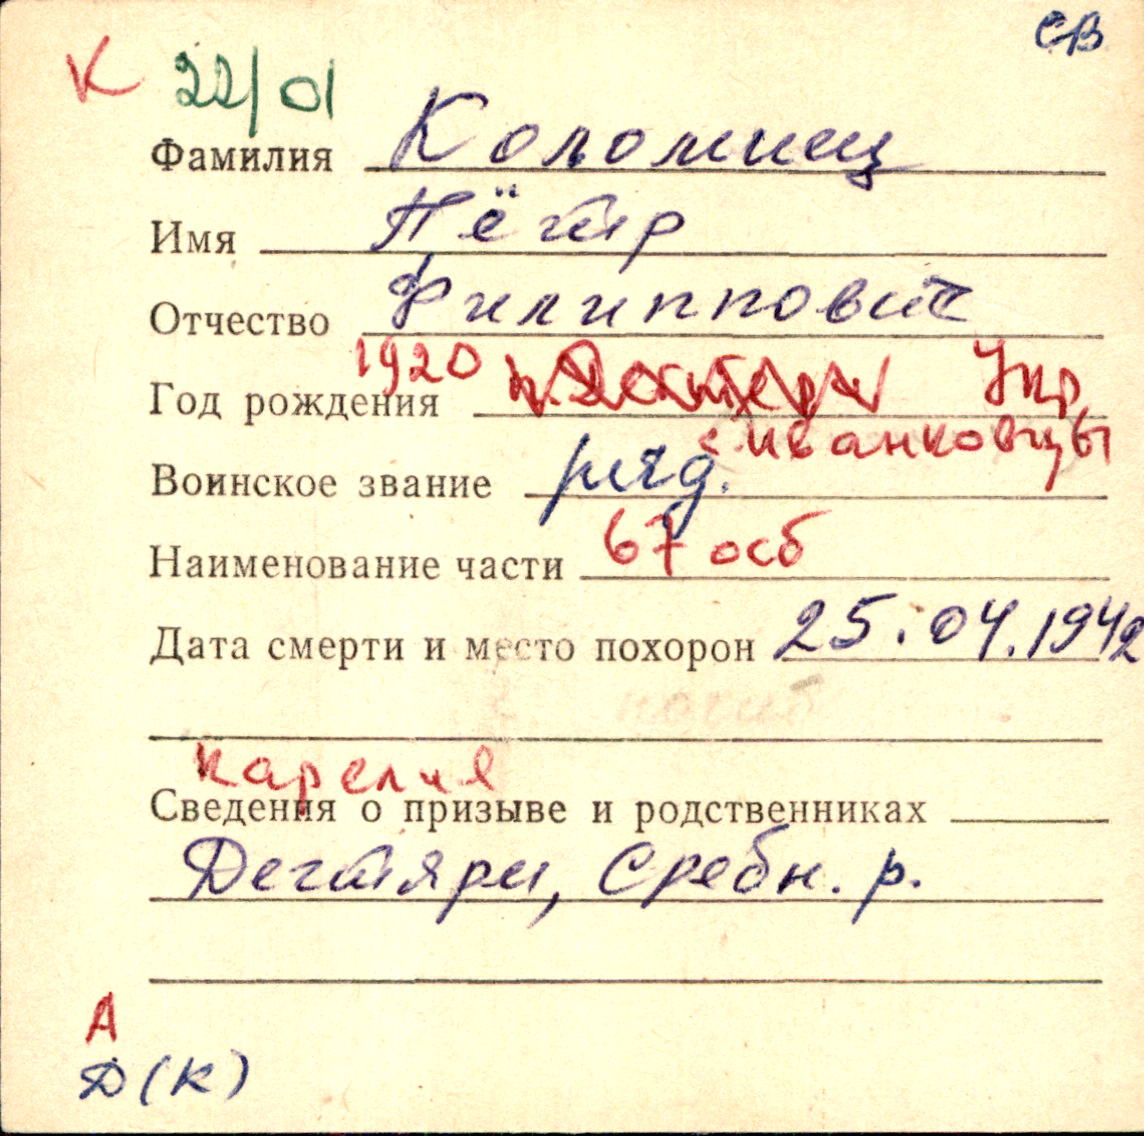 СВ
К 22/01
Фамилия Коломиец
Имя Пётр
Отчество Филиппович
Год рождения 1920 Укр.
с. Иванковцы
Воинское звание ряд.
Наименование части 67 осб
Дата смерти и место похорон 25.04.1942
погиб
Карелия
Сведения о призыве и родственниках
Дегтяри, Сребн. р.
А
Д(К)